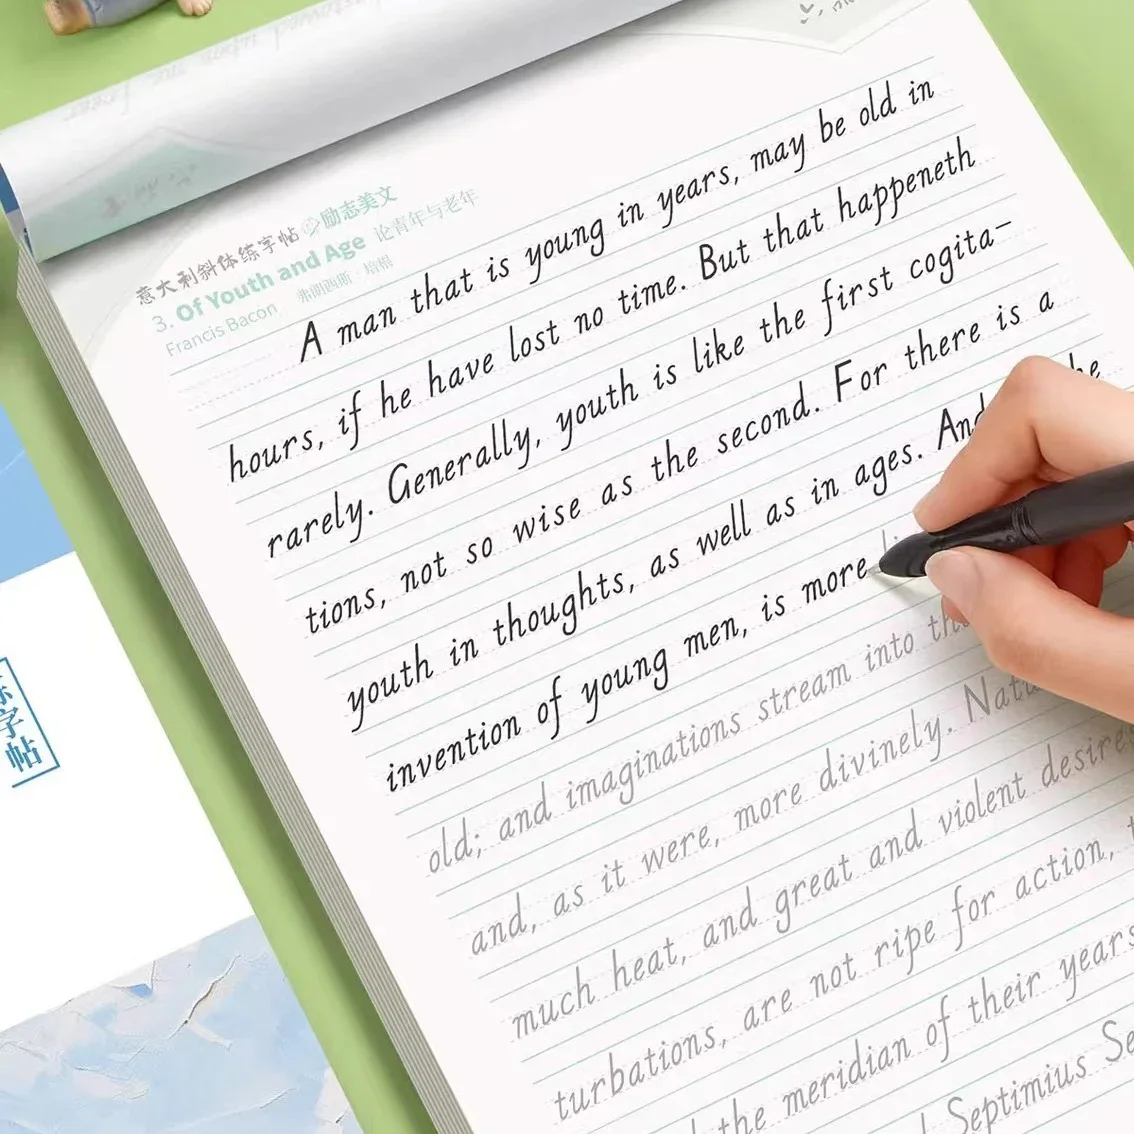 意大利斜体练字帖 励志美文
3. Of Youth and Age 论青年与老年
Francis Bacon 弗朗西斯·培根
A man that is young in years, may be old in
hours, if he have lost no time. But that happeneth
rarely. Generally, youth is like the first cogita-
tions, not so wise as the second. For there is a
youth in thoughts, as well as in ages. And he
invention of young men, is more
old; and imaginations stream into
and, as it were, more divinely.
much heat, and great and violent desires
turbations, are not ripe for action,
the meridian of their years
Septimius Se
练字帖